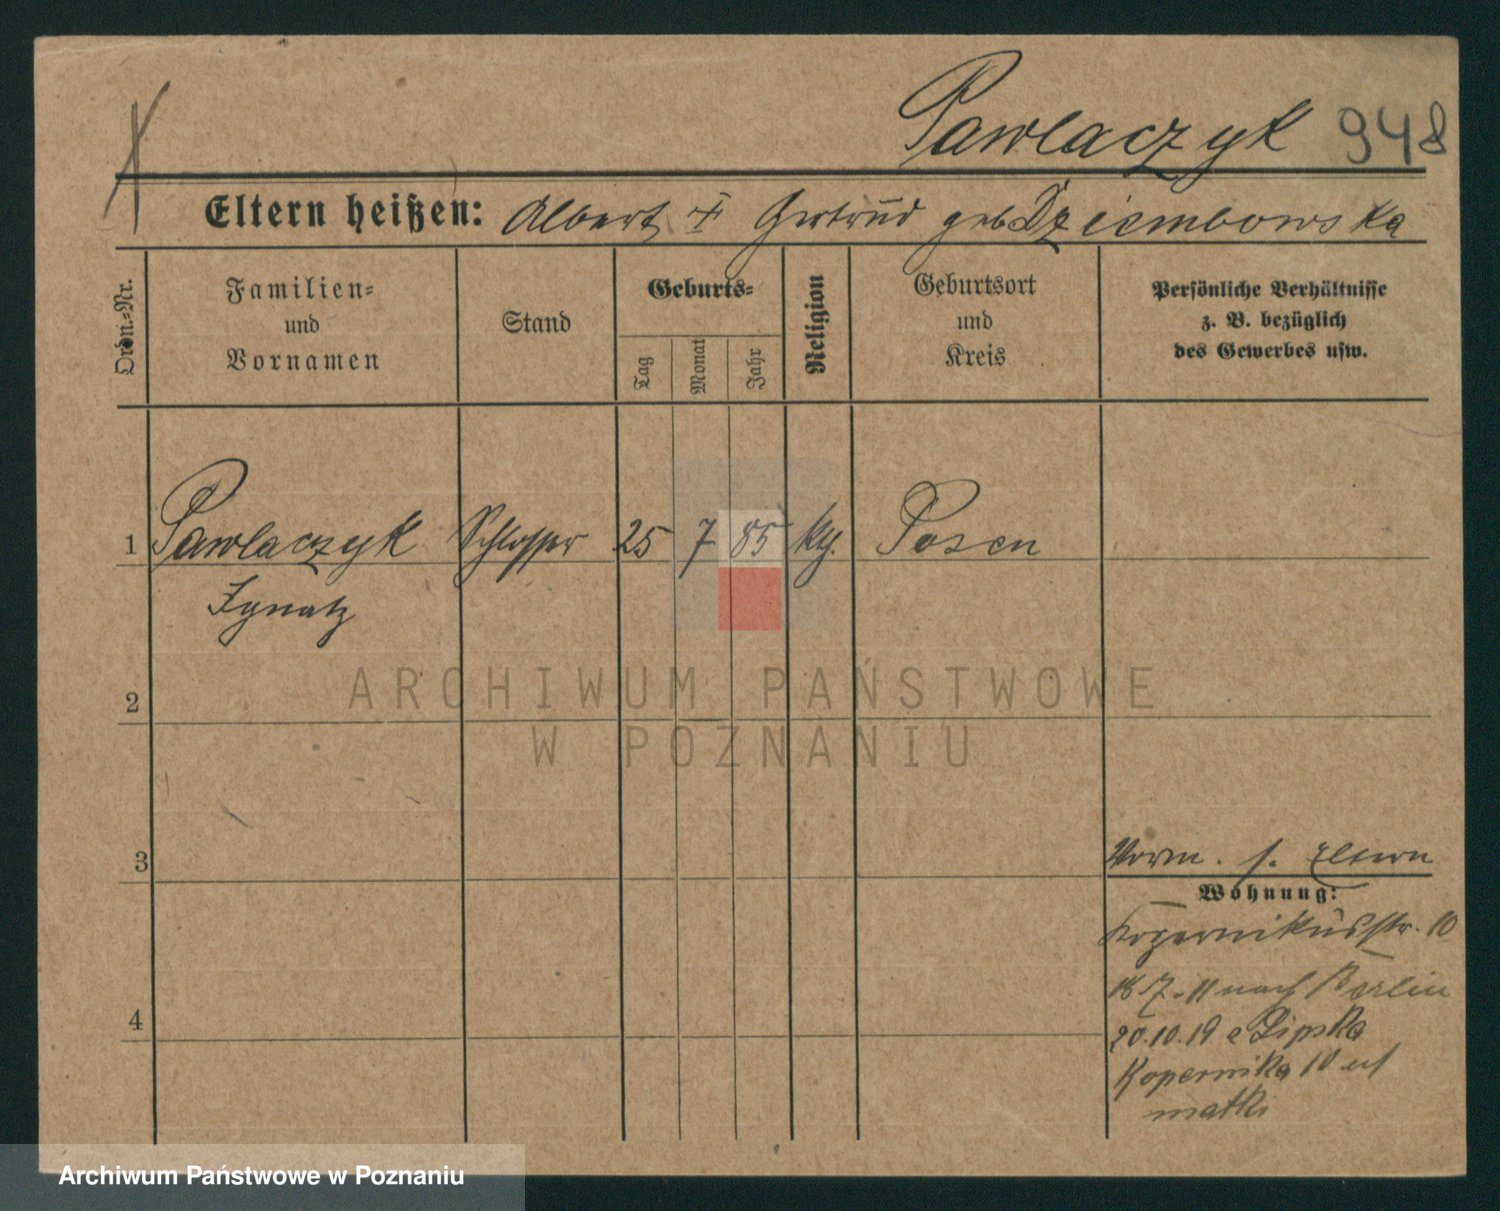 Pawlaczyk 948
Eltern heißen: Albert + Gertrud geb Dziembowska
Ordn.=Nr.
Familien=
und
Vornamen
Stand
Geburts=
Tag
Monat
Jahr
Religion
Geburtsort
und
Kreis
Persönliche Verhältnisse
z. B. bezüglich
des Gewerbes usw.
1 Pawlaczyk Schlosser 25 7 85 kth. Posen
Ignatz
2
3
4
Vorm. s. Eltern
Wohnung:
Kopernikusstr. 10
18.7.11 nach Berlin
20.10.19 z Lipska
Kopernika 10 u
matki
ARCHIWUM PAŃSTWOWE
W POZNANIU
Archiwum Państwowe w Poznaniu